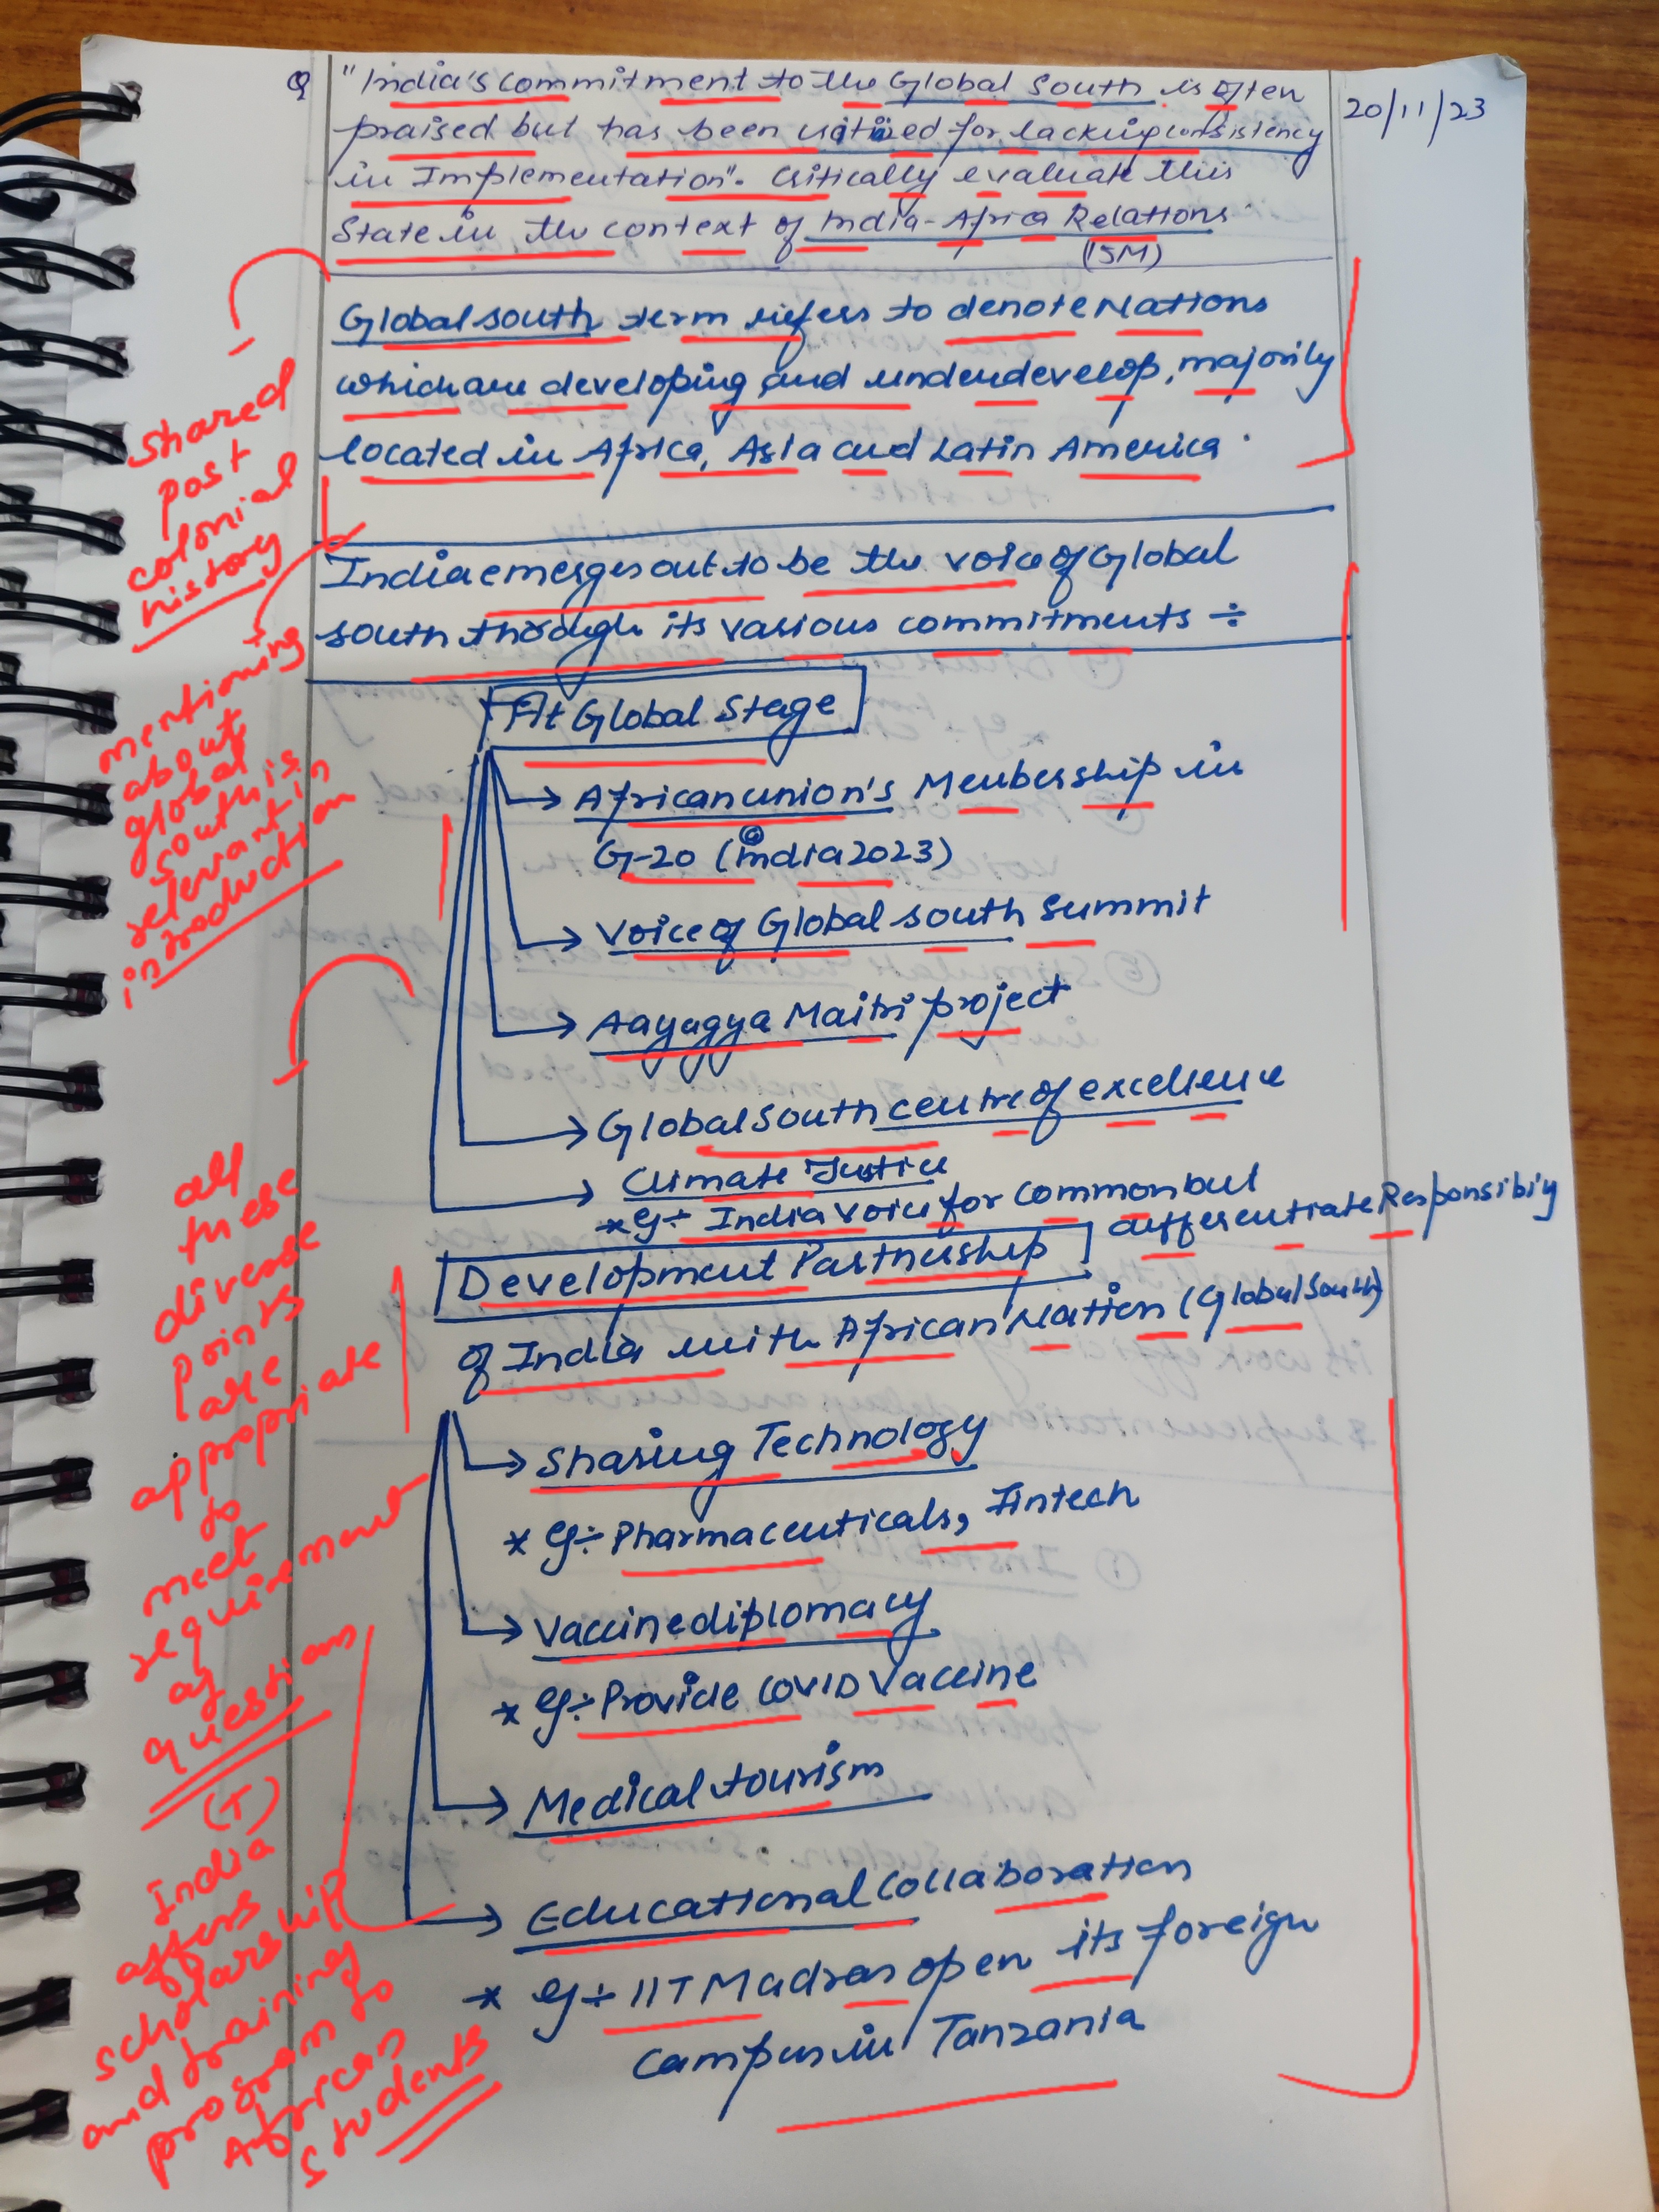 Q "India's commitment to the Global South is often
praised but has been criticized for lacking consistency
in Implementation". Critically evaluate this
State in the context of India-Africa Relations.
(15M)
20/11/23
Global south term refers to denote Nations
which are developing and underdevelop, majorily
located in Africa, Asia and Latin America.
shared
post
colonial
history
India emerges out to be the voice of Global
south through its various commitments ÷
mentioning
about
global
south is
relevant in
introduction
At Global Stage
→ African union's Membership in
G-20 (@ india 2023)
→ Voice of Global south summit
→ Aayogya Maitri project
→ Global south centre of excellence
→ Climate Justice
* eg÷ India voice for common but
differentiate Responsibiy
Development Partnership
of India with African Nation (Global South)
all
these
diverse
points
are
appropriate
to
meet
requirement
of
questions
→ Sharing Technology
* eg÷ Pharmaceuticals, Fintech
→ Vaccine diplomacy
* eg÷ Provide COVID Vaccine
→ Medical tourism
→ Educational collaboration
* eg÷ IIT Madras open its foreign
campus in Tanzania
(T)
India
offers
scholarship
and training
program to
African
students